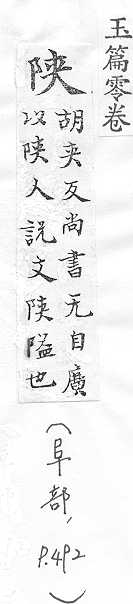 玉篇零卷
陜
胡夾反尚書无自廣
以陜人說文陜隘也
(阜部,
P.492
)